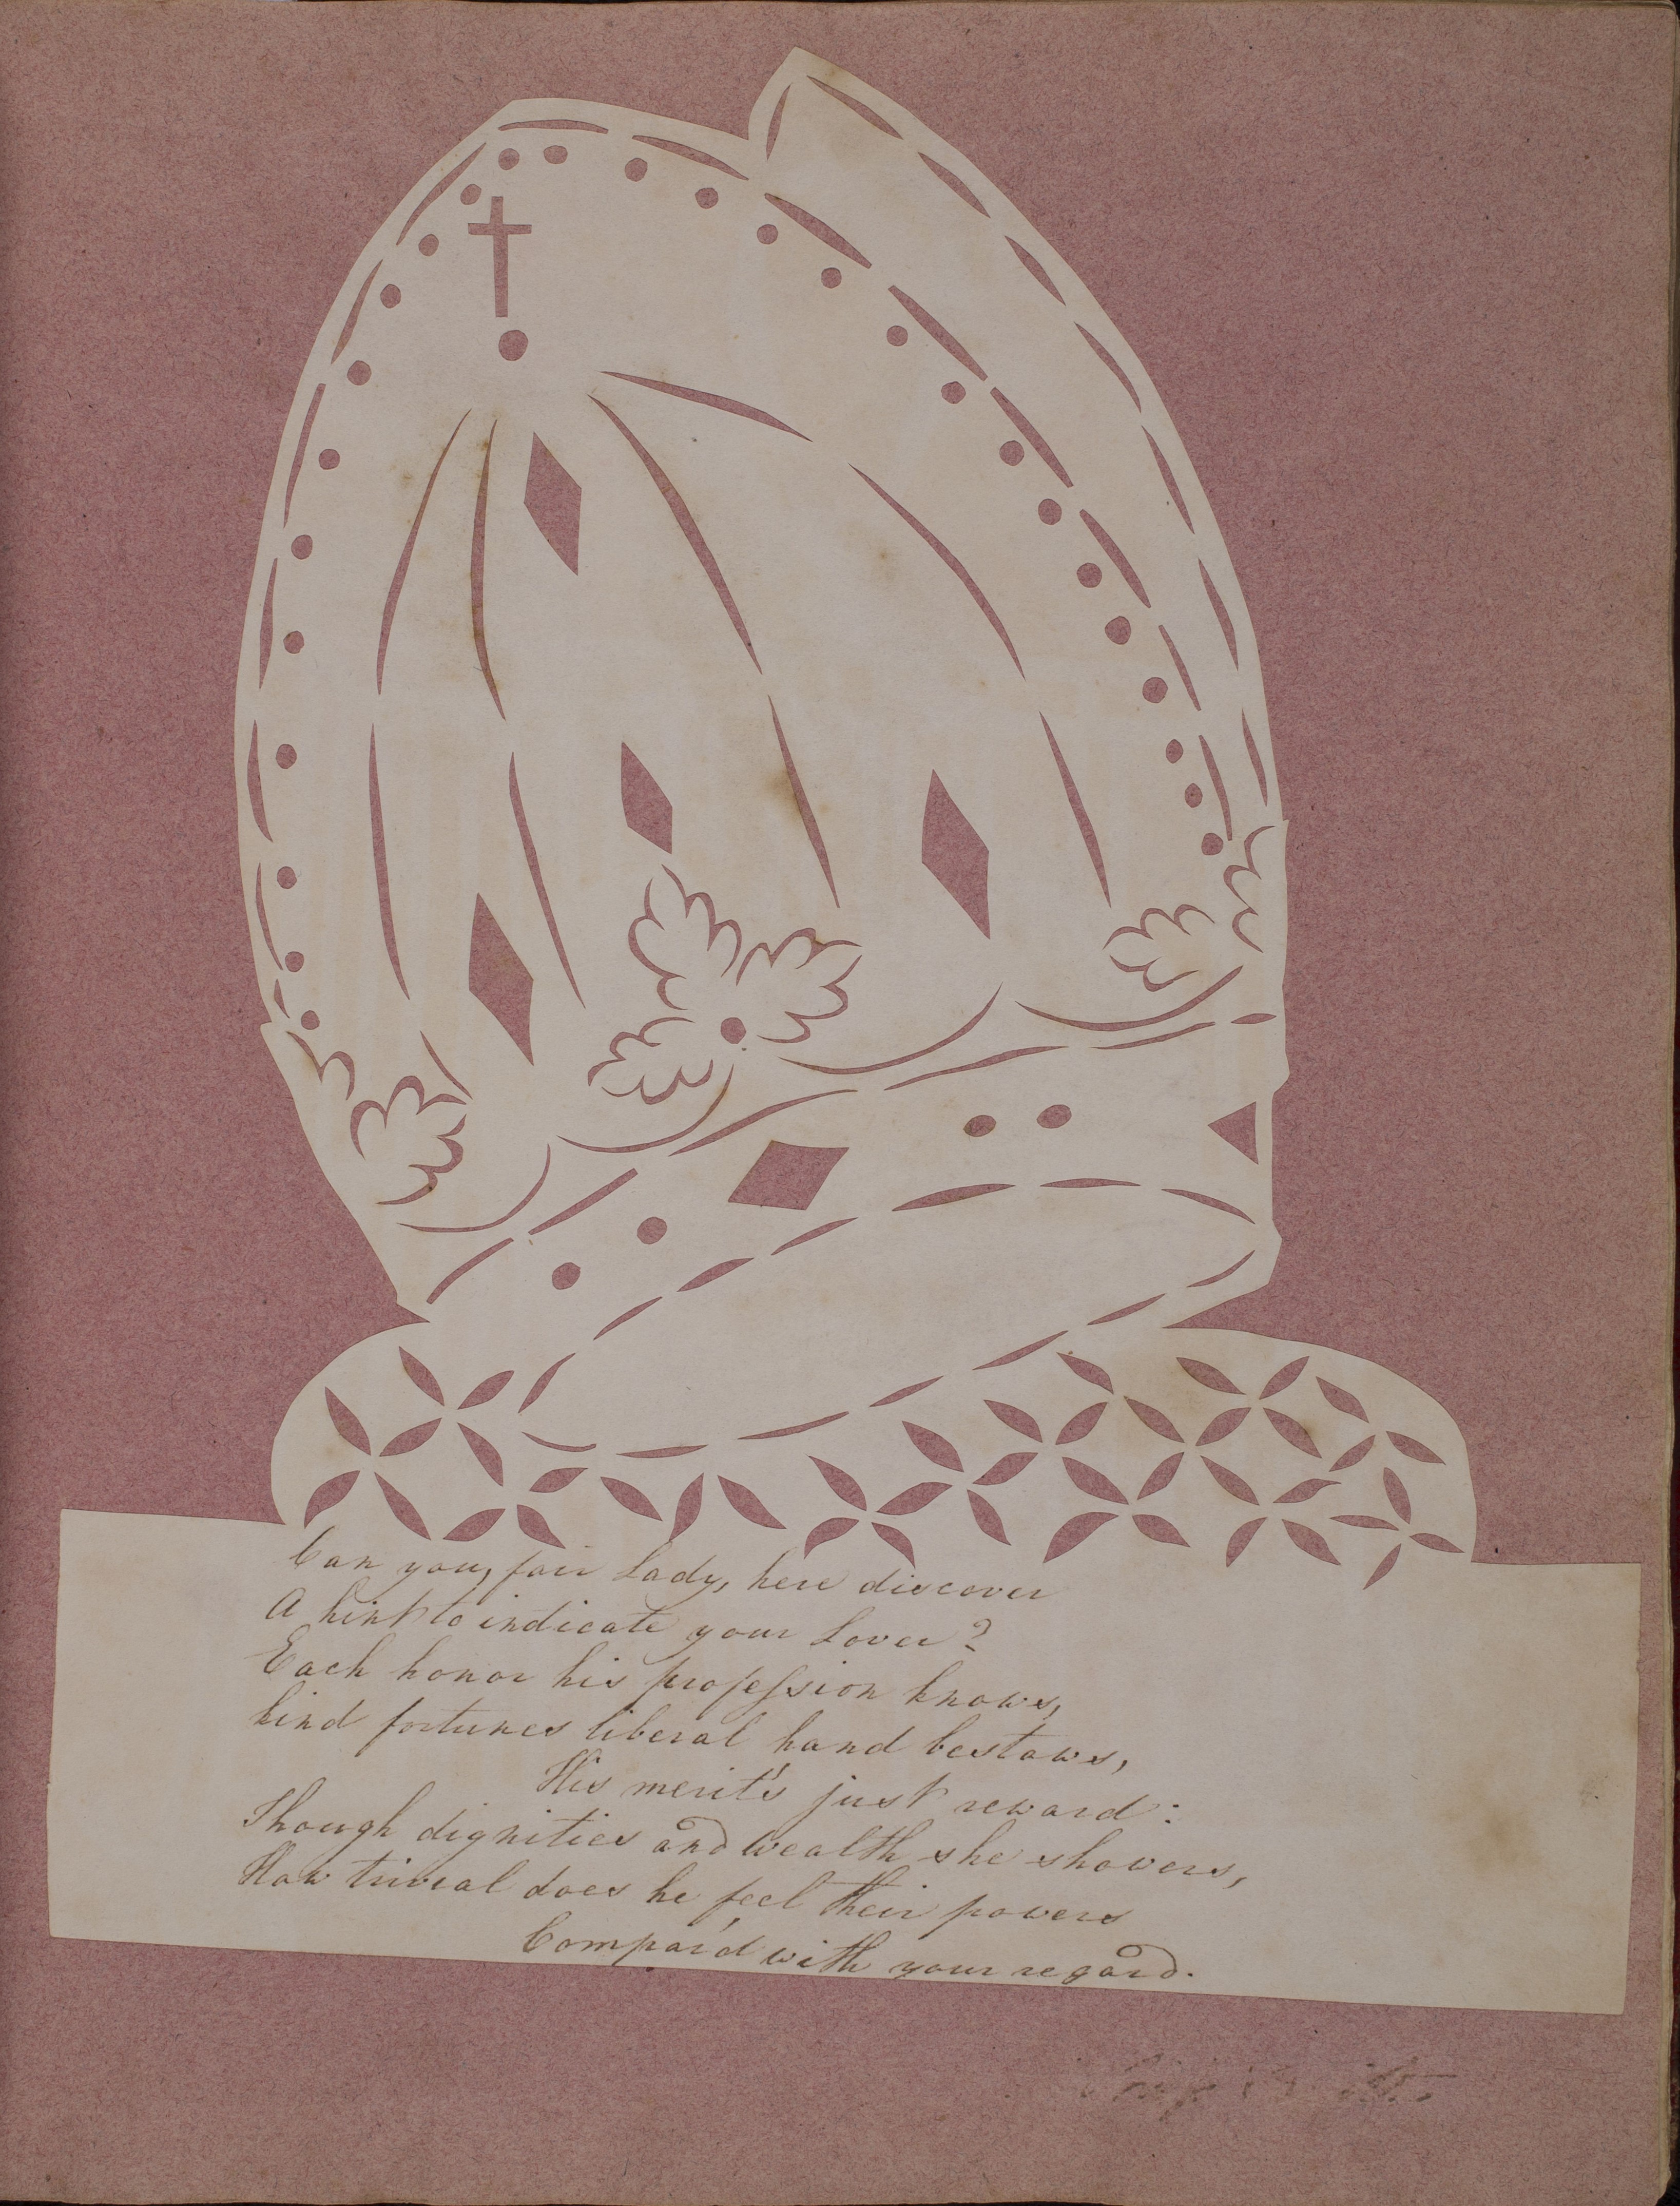 Can you, fair Lady, here discover
A hint to indicate your Lover?
Each honor his profeſsion knows,
kind fortunes liberal hand bestows,
His merit's just reward:
Though dignities and wealth she showers,
How trivial does he feel their powers
Compar'd with your regard.